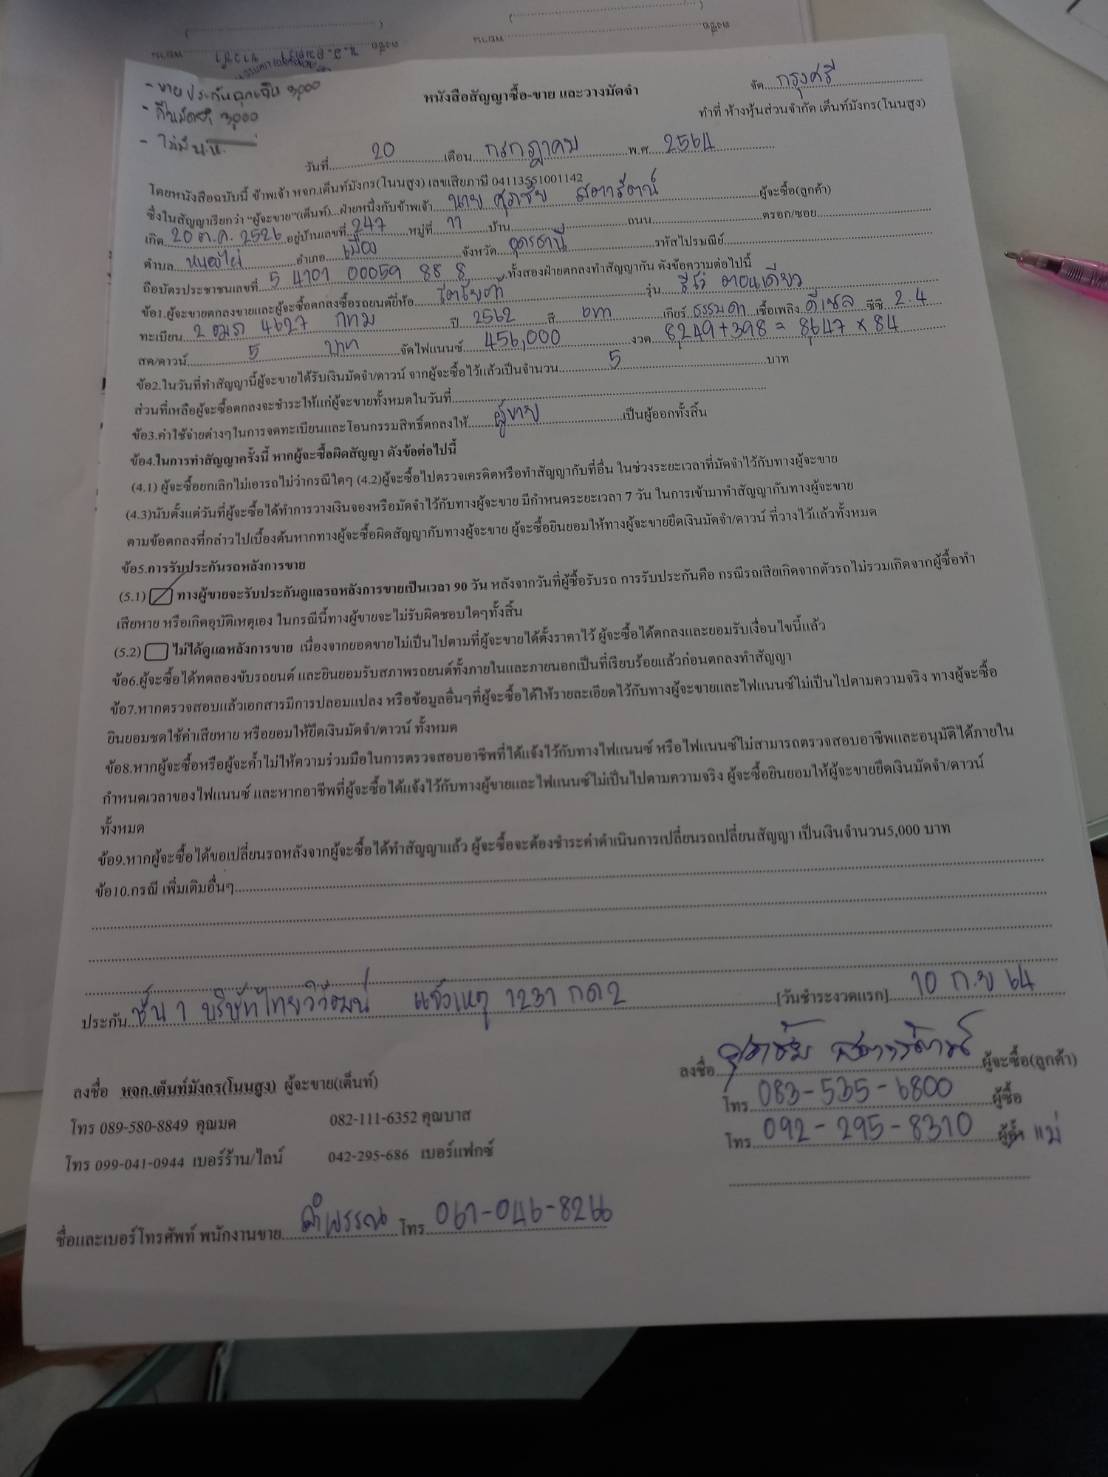 - ขายประกันฉุกเฉิน 3,000
- คืนมัดจำ 3,000
- ไม่มี น.ห.
จัด กรุงศรี
หนังสือสัญญาซื้อ-ขาย และวางมัดจำ
ทำที่ ห้างหุ้นส่วนจำกัด เต็นท์มังกร(โนนสูง)
วันที่ 20 เดือน กรกฎาคม พ.ศ. 2564
โดยหนังสือฉบับนี้ ข้าพเจ้า หจก.เต็นท์มังกร(โนนสูง) เลขเสียภาษี 04113551001142
ซึ่งในสัญญาเรียกว่า "ผู้จะขาย"(เต็นท์)...ฝ่ายหนึ่งกับข้าพเจ้า นาย ศุภชัย สดารัตน์ ผู้จะซื้อ(ลูกค้า)
เกิด 20 ต.ค. 2526 อยู่บ้านเลขที่ 247 หมู่ที่ 11 บ้าน ถนน ตรอก/ซอย
ตำบล หนองไผ่ อำเภอ เมือง จังหวัด อุดรธานี รหัสไปรษณีย์
ถือบัตรประชาชนเลขที่ 5 4101 00059 88 8 ทั้งสองฝ่ายตกลงทำสัญญากัน ดังข้อความต่อไปนี้
ข้อ1.ผู้จะขายตกลงขายและผู้จะซื้อตกลงซื้อรถยนต์ยี่ห้อ โตโยต้า รุ่น รีโว่ ตอนเดียว
ทะเบียน 2 ฒภ 4627 กทม ปี 2562 สี เทา เกียร์ ธรรมดา เชื้อเพลิง ดีเซล ซีซี 2.4
สด/ดาวน์ 5 บาท จัดไฟแนนซ์ 456,000 งวด 8,249+398 = 8647 x 84
ข้อ2.ในวันที่ทำสัญญานี้ผู้จะขายได้รับเงินมัดจำ/ดาวน์ จากผู้จะซื้อไว้แล้วเป็นจำนวน 5 บาท
ส่วนที่เหลือผู้จะซื้อตกลงจะชำระให้แก่ผู้จะขายทั้งหมดในวันที่
ข้อ3.ค่าใช้จ่ายต่างๆในการจดทะเบียนและโอนกรรมสิทธิ์ตกลงให้ ผู้ขาย เป็นผู้ออกทั้งสิ้น
ข้อ4.ในการทำสัญญาครั้งนี้ หากผู้จะซื้อผิดสัญญา ดังข้อต่อไปนี้
(4.1) ผู้จะซื้อยกเลิกไม่เอารถไม่ว่ากรณีใดๆ (4.2)ผู้จะซื้อไปตรวจเครดิตหรือทำสัญญากับที่อื่น ในช่วงระยะเวลาที่มัดจำไว้กับทางผู้จะขาย
(4.3)นับตั้งแต่วันที่ผู้จะซื้อได้ทำการวางเงินจองหรือมัดจำไว้กับทางผู้จะขาย มีกำหนดระยะเวลา 7 วัน ในการเข้ามาทำสัญญากับทางผู้จะขาย
ตามข้อตกลงที่กล่าวไปเบื้องต้นหากทางผู้จะซื้อผิดสัญญากับทางผู้จะขาย ผู้จะซื้อยินยอมให้ทางผู้จะขายยึดเงินมัดจำ/ดาวน์ ที่วางไว้แล้วทั้งหมด
ข้อ5.การรับประกันรถหลังการขาย
(5.1) ทางผู้ขายจะรับประกันดูแลรถหลังการขายเป็นเวลา 90 วัน หลังจากวันที่ผู้ซื้อรับรถ การรับประกันคือ กรณีรถเสียเกิดจากตัวรถไม่รวมเกิดจากผู้ซื้อทำ
เสียหาย หรือเกิดอุบัติเหตุเอง ในกรณีนี้ทางผู้ขายจะไม่รับผิดชอบใดๆทั้งสิ้น
(5.2) ไม่ได้ดูแลหลังการขาย เนื่องจากยอดขายไม่เป็นไปตามที่ผู้จะขายได้ตั้งราคาไว้ ผู้จะซื้อได้ตกลงและยอมรับเงื่อนไขนี้แล้ว
ข้อ6.ผู้จะซื้อได้ทดลองขับรถยนต์ และยินยอมรับสภาพรถยนต์ทั้งภายในและภายนอกเป็นที่เรียบร้อยแล้วก่อนตกลงทำสัญญา
ข้อ7.หากตรวจสอบแล้วเอกสารมีการปลอมแปลง หรือข้อมูลอื่นๆที่ผู้จะซื้อได้ให้รายละเอียดไว้กับทางผู้จะขายและไฟแนนซ์ไม่เป็นไปตามความจริง ทางผู้จะซื้อ
ยินยอมชดใช้ค่าเสียหาย หรือยอมให้ยึดเงินมัดจำ/ดาวน์ ทั้งหมด
ข้อ8.หากผู้จะซื้อหรือผู้จะค้ำไม่ให้ความร่วมมือในการตรวจสอบอาชีพที่ได้แจ้งไว้กับทางไฟแนนซ์ หรือไฟแนนซ์ไม่สามารถตรวจสอบอาชีพและอนุมัติได้ภายใน
กำหนดเวลาของไฟแนนซ์ และหากอาชีพที่ผู้จะซื้อได้แจ้งไว้กับทางผู้ขายและไฟแนนซ์ไม่เป็นไปตามความจริง ผู้จะซื้อยินยอมให้ผู้จะขายยึดเงินมัดจำ/ดาวน์
ทั้งหมด
ข้อ9.หากผู้จะซื้อได้ขอเปลี่ยนรถหลังจากผู้จะซื้อได้ทำสัญญาแล้ว ผู้จะซื้อจะต้องชำระค่าดำเนินการเปลี่ยนรถเปลี่ยนสัญญา เป็นเงินจำนวน5,000 บาท
ข้อ10.กรณี เพิ่มเติมอื่นๆ
ประกัน ชั้น 1 บริษัทไทยวิวัฒน์ แจ้งเหตุ 1231 กด 2 [วันชำระงวดแรก] 10 ก.ย 64
ลงชื่อ หจก.เต็นท์มังกร(โนนสูง) ผู้จะขาย(เต็นท์)
ลงชื่อ ศุภชัย สดารัตน์ ผู้จะซื้อ(ลูกค้า)
โทร 089-580-8849 คุณมด 082-111-6352 คุณบาส
โทร 083-535-6800 ผู้ซื้อ
โทร 099-041-0944 เบอร์ร้าน/ไลน์ 042-295-686 เบอร์แฟกซ์
โทร 092-295-8310 ผู้ค้ำ แม่
ชื่อและเบอร์โทรศัพท์ พนักงานขาย โทร 061-046-8266